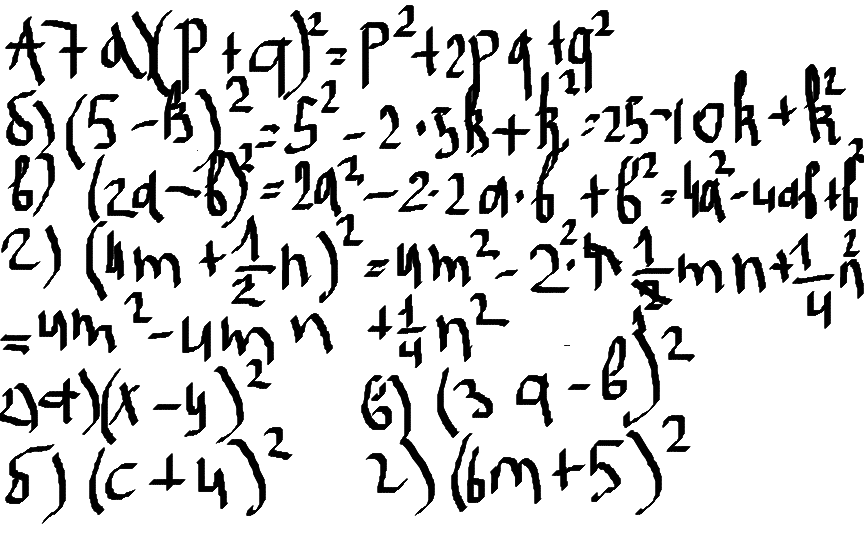 А7 а) (p + q)² = p² + 2pq + q²
б) (5 − k)² = 5² − 2 · 5k + k² = 25 − 10k + k²
в) (2a − b)² = 2a² − 2 · 2a · b + b² = 4a² − 4ab + b²
г) (4m + 1/2 n)² = 4m² − 2 · 1/2 mn + 1/4 n²
= 4m² − 4mn + 1/4 n²
2) а) (x − y)² в) (3a − b)²
б) (c + 4)² г) (6m + 5)²